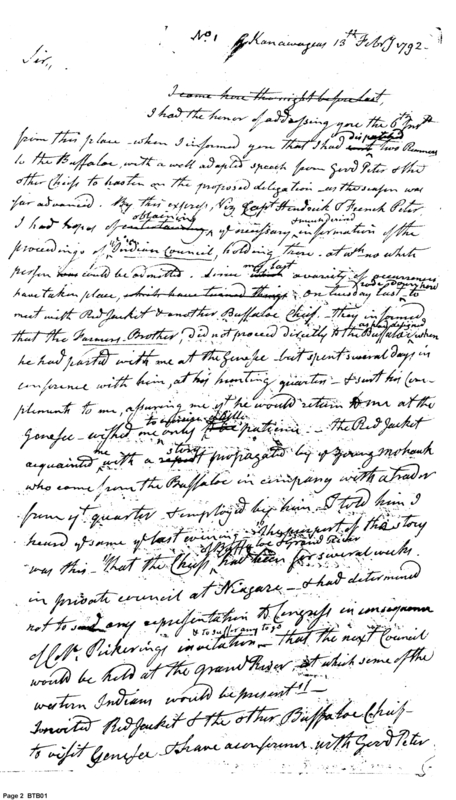 No. 1 Kanawageas 13th Feby 1792 -
Sir,,
I came here the night before last,
I had the honor of addressing you the 6th Inst
dispatched
from this place - when I informed you that I had sent two Runners
to the Buffaloe, with a well adapted speech from Good Peter & the
other Chiefs to hasten on the proposed delegation - as the season was
far advanced. By this express, Viz Capt Hendrick & French Peter
obtaining
I had hopes of & necessary information of the
proceedings of Indian Council, holding there. at wh. no white
my last
person was could be admitted. Since which a variety of occurrences
I rode down here
have taken place, which have turned things - on Tuesday last to
meet with Red Jacket & another Buffaloe Chief. - they informed
that the Farmers-Brother, did not proceed directly to the Buffaloe, when
he had parted with me at the Genesee - but spent several days in
conference with him, at his hunting quarters - & sent his Com-
plements to me, assuring me yt he would return to me at the
to exercise a little
Genesee - wished me only to be patience - the Red Jacket
me story
acquainted with a report propagated by a young mohawk
who came from the Buffaloe in company with a trader
from yt quarter & employed by him - I told him I
heard ye same ye last evening - the purport of this story
of Buffaloe & Grand River
was this - "That the Chiefs had been for several weeks
in private council at Niagara - & had determined
not to send any representation to Congress in consequence
& to suffer any to go
of Col. Pickerings invitation - that the next Council
would be held at the Grand River at which some of the
western Indians would be present" -
I invited Red Jacket & the other Buffaloe Chief
to visit Genesee & have a conference with Good Peter
Page 2 BTB01